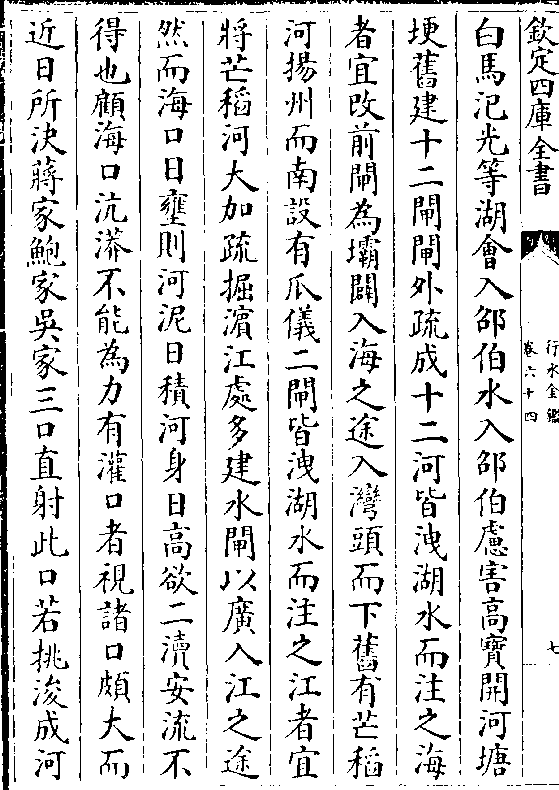 欽定四庫全書
行水金鑑
卷六十四
七
白馬汜光等湖會入邵伯水入邵伯慮害高寶開河塘
埂舊建十二閘閘外疏成十二河皆洩湖水而注之海
者宜改前閘為壩闢入海之途入灣頭而下舊有芒稻
河揚州而南設有瓜儀二閘皆洩湖水而注之江者宜
將芒稻河大加疏掘濵江處多建水閘以廣入江之途
然而海口日壅則河泥日積河身日高欲二瀆安流不
得也顧海口沆漭不能為力有灌口者視諸口頗大而
近日所決蔣家鮑家吳家三口直射此口若挑浚成河